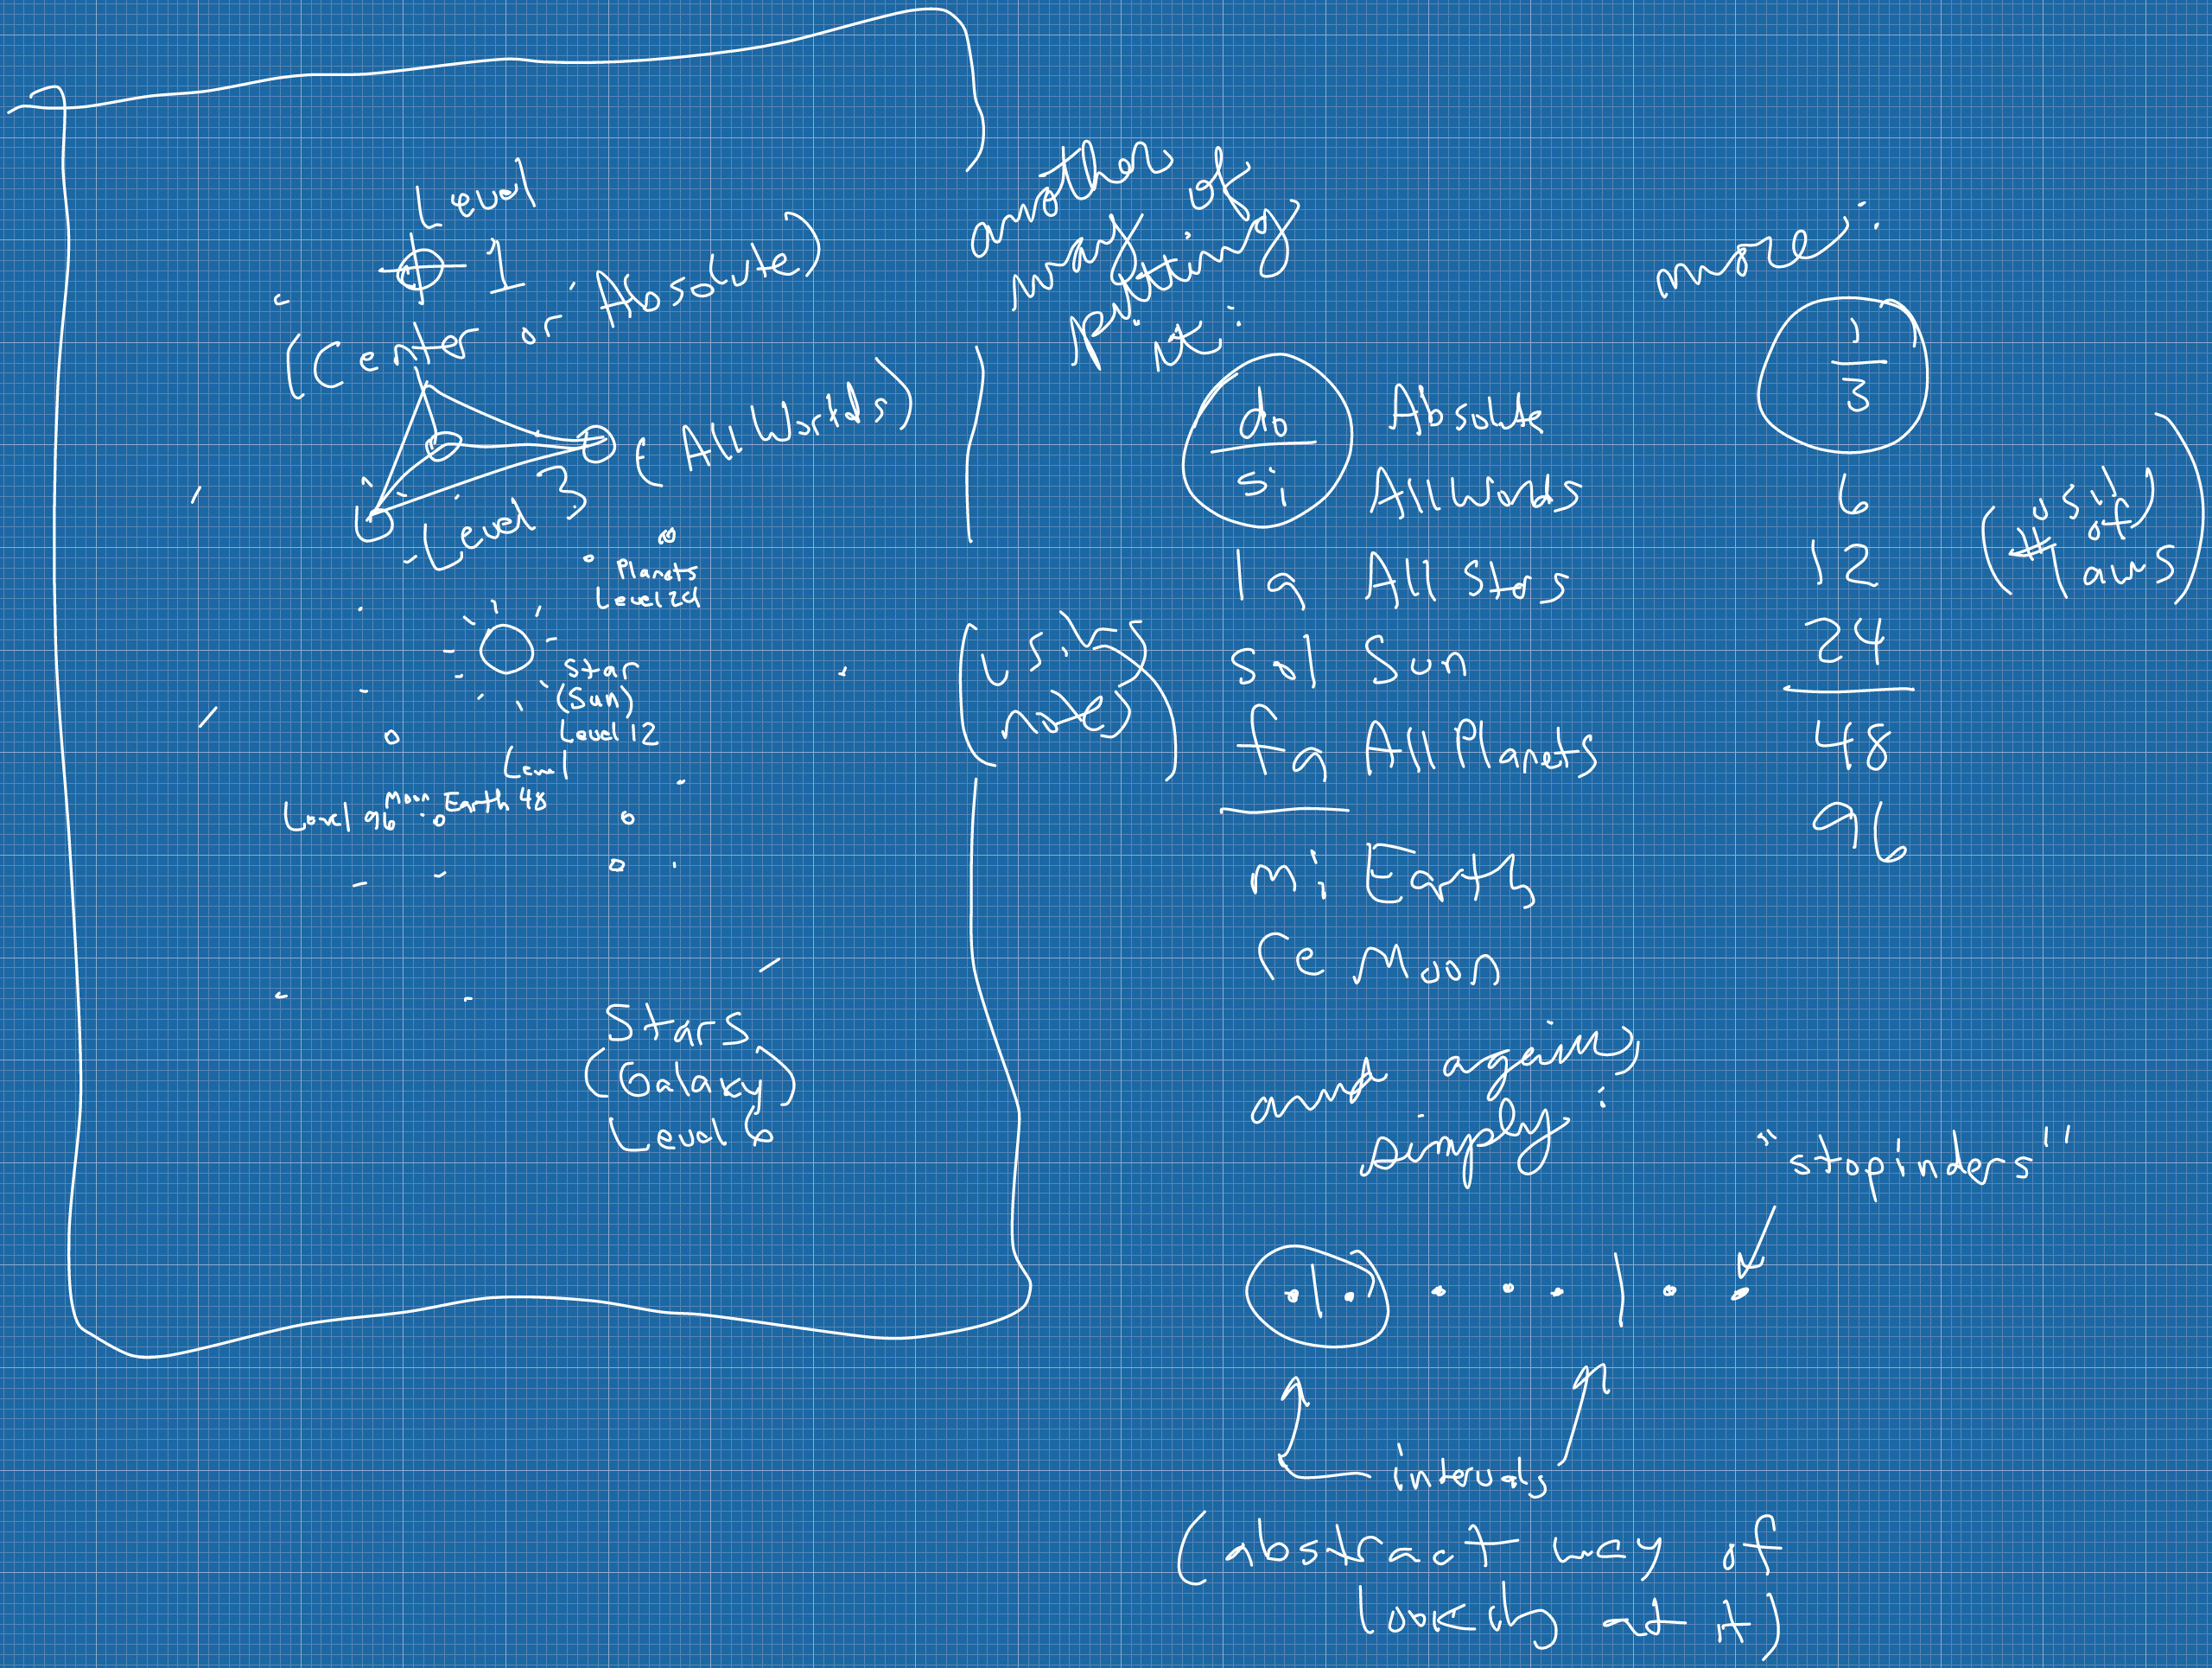 Level
1
(Center or Absolute)
(All Worlds)
Level 3
Planets
Level 24
Star
(Sun)
Level 12
Level
Moon Earth 48
Level 96
Stars
(Galaxy)
Level 6
another
way of
putting
it:
(using
notes)
do Absolute
si All Worlds
la All Stars
sol Sun
fa All Planets
mi Earth
re Moon
more:
1
3
6
12
24
48
96
(using
# of
laws)
and again,
simply:
"stopinders"
intervals
(abstract way of
looking at it)